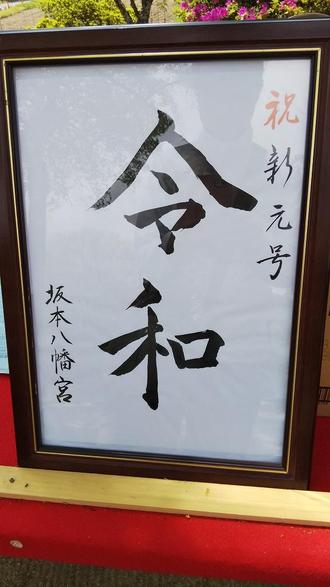 祝新元号
令和
坂本八幡宮